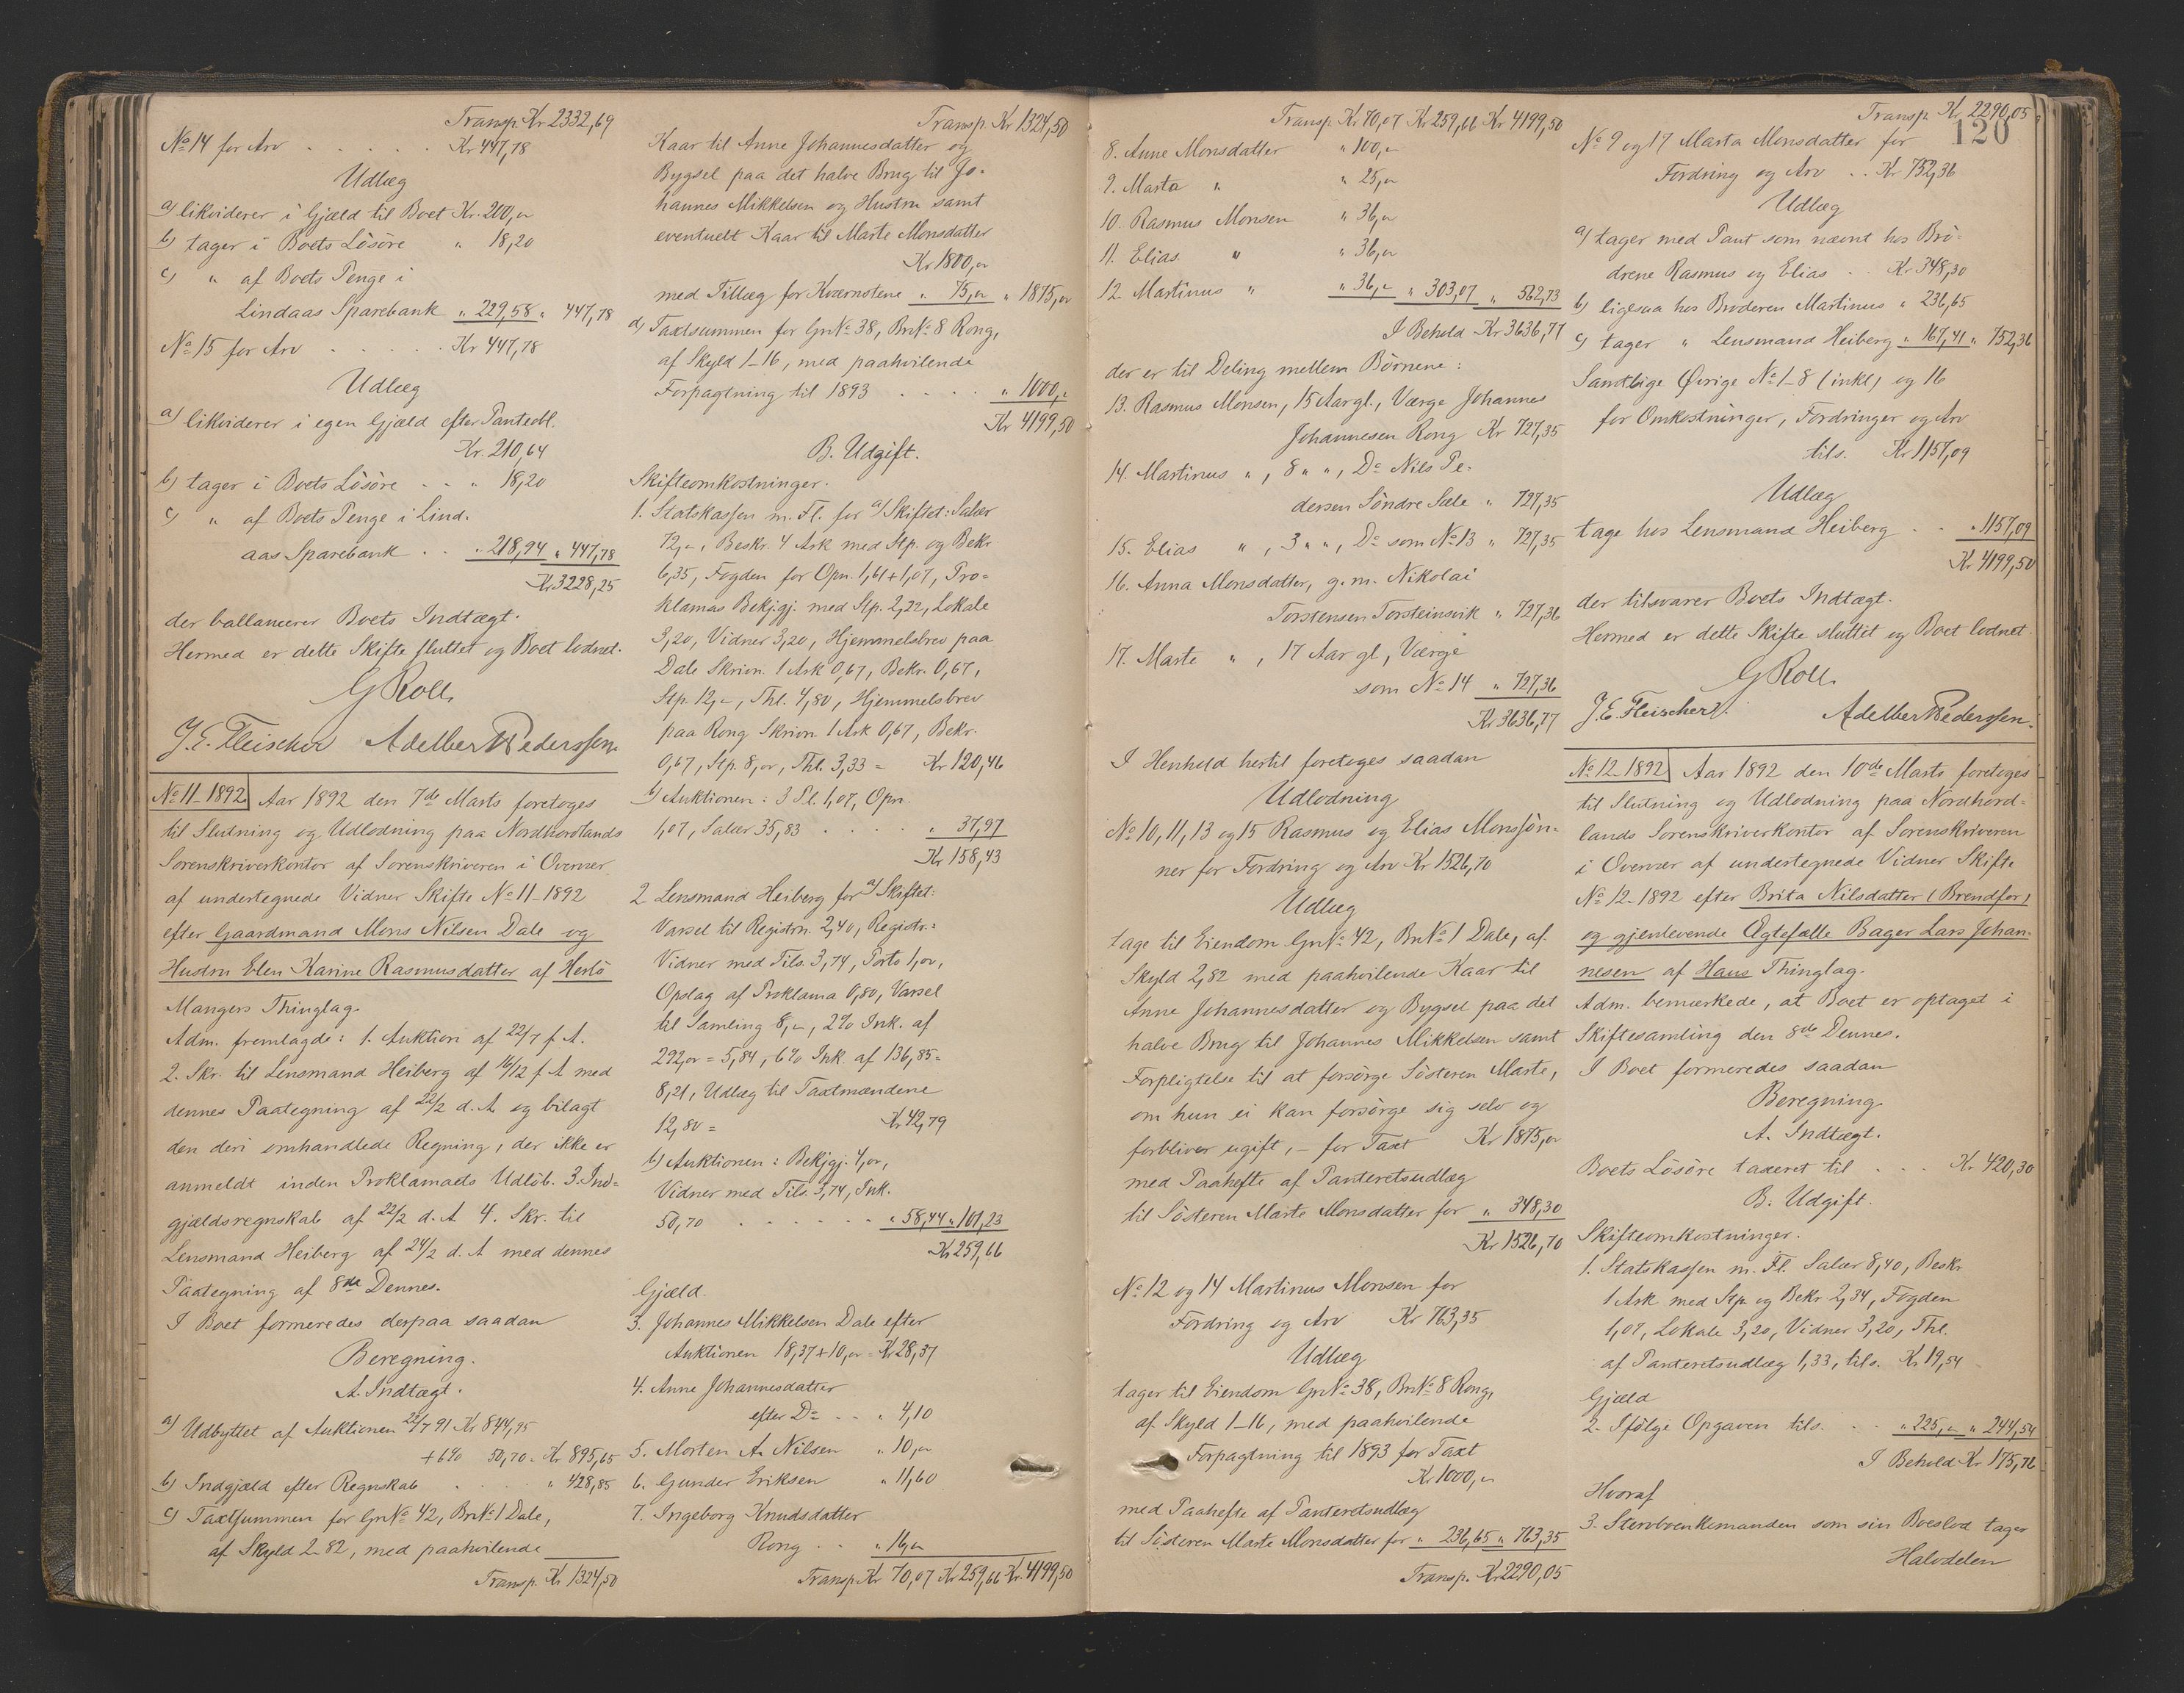 Transp. Kr 2332,69
No 14 for Arv . . . . . Kr 447,78
Udlæg
a) likviderer i Gjæld til Boet Kr. 200,00
b) tager i Boets Lösöre " 18,20
c) " af Boets Penge i
Lindaas Sparebank " 229,58 " 447,78
No 15 for Arv . . . . . Kr 447,78
Udlæg
a) likviderer i egen Gjæld efter Panteobl.
Kr. 210,64
b) tager i Boets Lösöre . . " 18,20
c) " af Boets Penge i Lind-
aas Sparebank . . " 218,94 " 447,78
Kr 3228,25
der ballancerer Boets Indtægt.
Hermed er dette Skifte sluttet og Boet lodnet.
G Roll.
J. E. Fleischer Adelbert Pederssen
No 11-1892 Aar 1892 den 7de Marts foretoges
til Slutning og Udlodning paa Nordhordlands
Sorenskriverkontor af Sorenskriveren i Overvær
af undertegnede Vidner Skifte No 11-1892
efter Gaardmand Mons Nilsen Dale og
Hustru Elen Karine Rasmusdatter af Herlö
Mangers Thinglag.
Adm. fremlagde: 1. Auktion af 22/7 f. A.
2. Skr. til Lensmand Heiberg af 16/12 f A med
dennes Paategning af 22/2 d. A. og bilagt
den deri omhandlede Regning, der ikke er
anmeldt inden Proklamaets Udlöb. 3. Ind-
gjældsregnskab af 22/2 d. A 4. Skr. til
Lensmand Heiberg af 24/2 d. A med dennes
Paategning af 8de Dennes.
I Boet formeredes derpaa saadan
Beregning.
A. Indtægt.
a) Udbyttet af Auktionen 22/7 91 Kr 844,95
+ 6% 50,70 = Kr 895,65
b) Indgjæld efter Regnskab . . . . " 428,85
c) Taxtsummen for GnNo 42, BnNo 1 Dale,
af Skyld 2-82, med paahvilende
Transp. Kr 1324,50
Transp. Kr 1324,50
Kaar til Anne Johannesdatter og
Bygsel paa det halve Brug til Jo-
hannes Mikkelsen og Hustru samt
eventuelt Kaar til Marte Monsdatter
Kr 1800,00
med Tillæg for Kværnstene " 75,00 " 1875,00
d) Taxtsummen for GnNo 38, BnNo 8 Rong,
af Skyld 1-16, med paahvilende
Forpagtning til 1893 . . . . " 1000,-
Kr 4199,50
B. Udgift.
Skifteomkostninger.
1. Statskassen m. Fl. for a) Skiftet: Salær
72,-, Beskr. 4 Ark med Stp. og Bekr.
6,35, Fogden for Opn. 1,61 + 1,07, Pro-
klamas Bekjgj. med Stp. 2,22, Lokale
3,20, Vidner 3,20, Hjemmelsbrev paa
Dale Skrivn. 1 Ark 0,67, Bekr. 0,67,
Stp. 12,-, Thl. 4,80, Hjemmelsbrev
paa Rong Skrivn. 1 Ark 0,67, Bekr.
0,67, Stp. 8,00, Thl. 3,33 = Kr 120,46
b) Auktionen: 3 Pl. 1,07, Opn.
1,07, Salær 35,83 . . . . . " 37,97
Kr 158,43
2. Lensmand Heiberg for a) Skiftet:
Varsel til Registrn. 2,40, Registr.-
Vidner med Tils. 3,74, Porto 1,00,
Opslag af Proklama 0,80, Varsel
til Samling 8,-, 2% Ink. af
292,00 = 5,84, 6% Ink. af 136,85 =
8,21, Udlæg til Taxtmændene
12,80 = Kr 42,79
b) Auktionen: Bekjgj. 4,00,
Vidner med Tils. 3,74, Ink.
50,70 . . . . . . " 58,44 " 101,23
Kr 259,66
Gjæld.
3. Johannes Mikkelsen Dale efter
Auktionen 18,37 + 10,00 = Kr 28,37
4. Anne Johannesdatter
efter Do . . " 4,10
5. Morten A. Nilsen " 10,00
6. Gunder Eriksen " 11,60
7. Ingeborg Knudsdatter
Rong . . " 16,00
Transp. Kr 70,07 Kr 259,66 Kr. 4199,50
Transp. Kr 70,07 Kr 259,66 Kr 4199,50
8. Anne Monsdatter " 100,00
9. Marta " " 25,00
10. Rasmus Monsen " 36,00
11. Elias " " 36,00
12. Martinus " " 36,- " 303,07 " 562,73
I Behold Kr 3636,77
der er til Deling mellem Börnene:
13. Rasmus Monsen, 15 Aar gl., Værge Johannes
Johannesen Rong Kr 727,35
14. Martinus ", 8 " ", Do Nils Pe-
dersen Söndre Sæle " 727,35
15. Elias ", 3 " ", Do som No 13 " 727,35
16. Anna Monsdatter, g. m. Nikolai
Torstensen Torsteinsvik " 727,36
17. Marte ", 17 Aar gl., Værge
som No 14 " 727,36
Kr 3636,77
I Henhold hertil foretoges saadan
Udlodning
No 10, 11, 13 og 15 Rasmus og Elias Monssön-
ner for Fordring og Arv Kr 1526,70
Udlæg
tage til Eiendom GnNo 42, BnNo 1 Dale, af
Skyld 2,82 med paahvilende Kaar til
Anne Johannesdatter og Bygsel paa det
halve Brug til Johannes Mikkelsen samt
Forpligtelse til at forsörge Sösteren Marte,
om hun ei kan forsörge sig selv og
forbliver ugift, - for Taxt Kr 1875,00
med Paahefte af Panteretsudlæg
til Sösteren Marte Monsdatter for " 348,30
Kr 1526,70
No 12 og 14 Martinus Monsen for
Fordring og Arv Kr 763,35
Udlæg
tager til Eiendom GnNo 38, BnNo 8 Rong,
af Skyld 1-16, med paahvilende
Forpagtning til 1893 for Taxt
Kr 1000,00
med Paahefte af Panteretsudlæg
til Sösteren Marte Monsdatter for " 236,65 " 763,35
Transp. Kr 2290,05
Transp. Kr. 2290,05
120
No 9 og 17 Marta Monsdatter for
Fordring og Arv . . Kr 752,36
Udlæg
a) tager med Pant som nævnt hos Brö-
drene Rasmus og Elias . . Kr 348,30
b) ligesaa hos Broderen Martinus " 236,65
c) tager " Lensmand Heiberg " 167,41 " 752,36
Samtlige Øvrige No 1-8 (inkl) og 16
for Omkostninger, Fordringer og Arv
tils. Kr 1157,09
Udlæg
tage hos Lensmand Heiberg . . " 1157,09
Kr. 4199,50
der tilsvarer Boets Indtægt.
Hermed er dette Skifte sluttet og Boet lodnet.
G Roll.
J. E. Fleischer. Adelbert Pederssen.
No 12-1892 Aar 1892 den 10de Marts foretoges
til Slutning og Udlodning paa Nordhord-
lands Sorenskriverkontor af Sorenskriveren
i Overvær af undertegnede Vidner Skifte
No 12-1892 efter Brita Nilsdatter (Brendfor)
og gjenlevende Ægtefælle Bager Lars Johan-
nesen af Haus Thinglag.
Adm. bemærkede, at Boet er optaget i
Skiftesamling den 8de Dennes.
I Boet formeredes saadan
Beregning.
A. Indtægt.
Boets Lösöre taxeret til . . . Kr. 420,30
B. Udgift.
Skifteomkostninger.
1. Statskassen m. Fl. Salær 8,40, Beskr.
1 Ark med Stp. og Bekr. 2,34, Fogden
1,07, Lokale 3,20, Vidner 3,20, Thl.
af Panteretsudlæg 1,33, tils. Kr. 19,54
Gjæld
2. Ifölge Opgaven tils. . . " 225,00 " 244,54
I Behold Kr 175,76
Hvoraf
3. Stervboenkemanden som sin Boeslod tager
Halvdelen